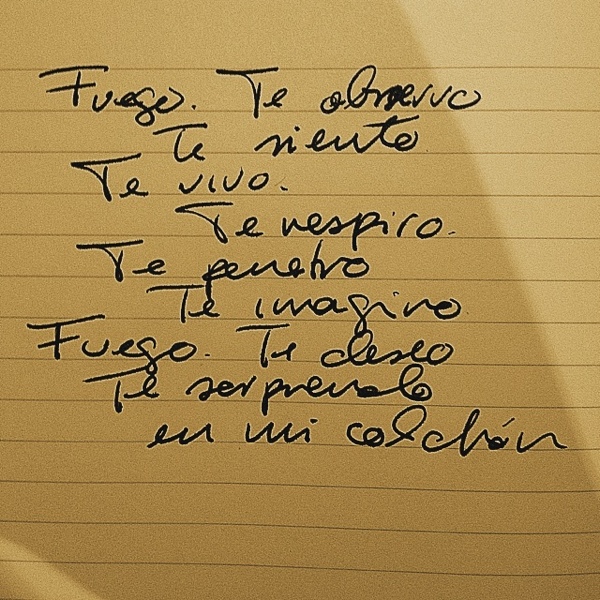 Fuego. Te observo
Te siento
Te vivo.
Te respiro.
Te penetro
Te imagino.
Fuego. Te deseo
Te sorprendo
en mi colchón